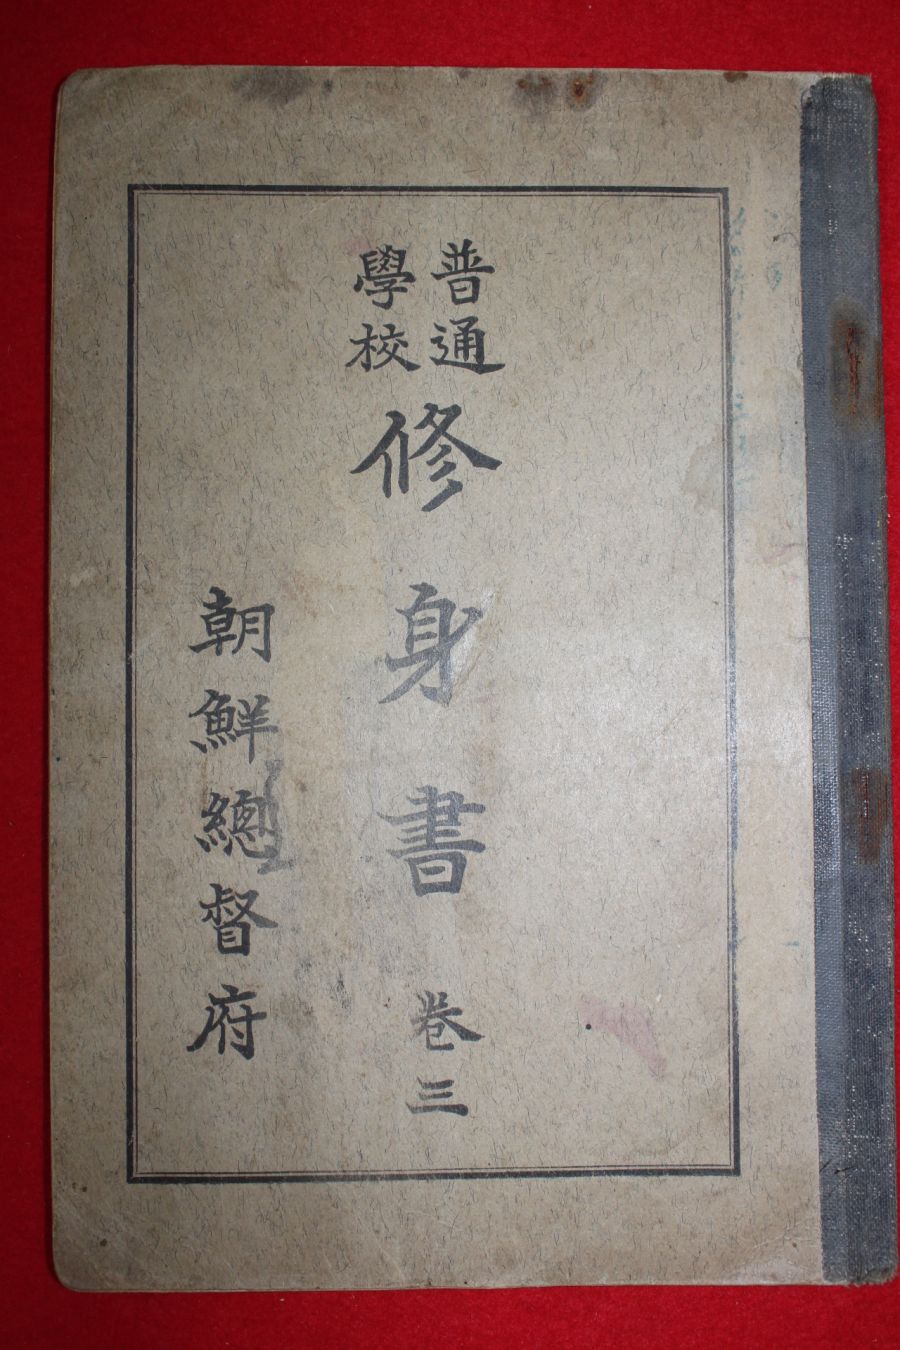 普通
學校
修身書 卷三
朝鮮總督府